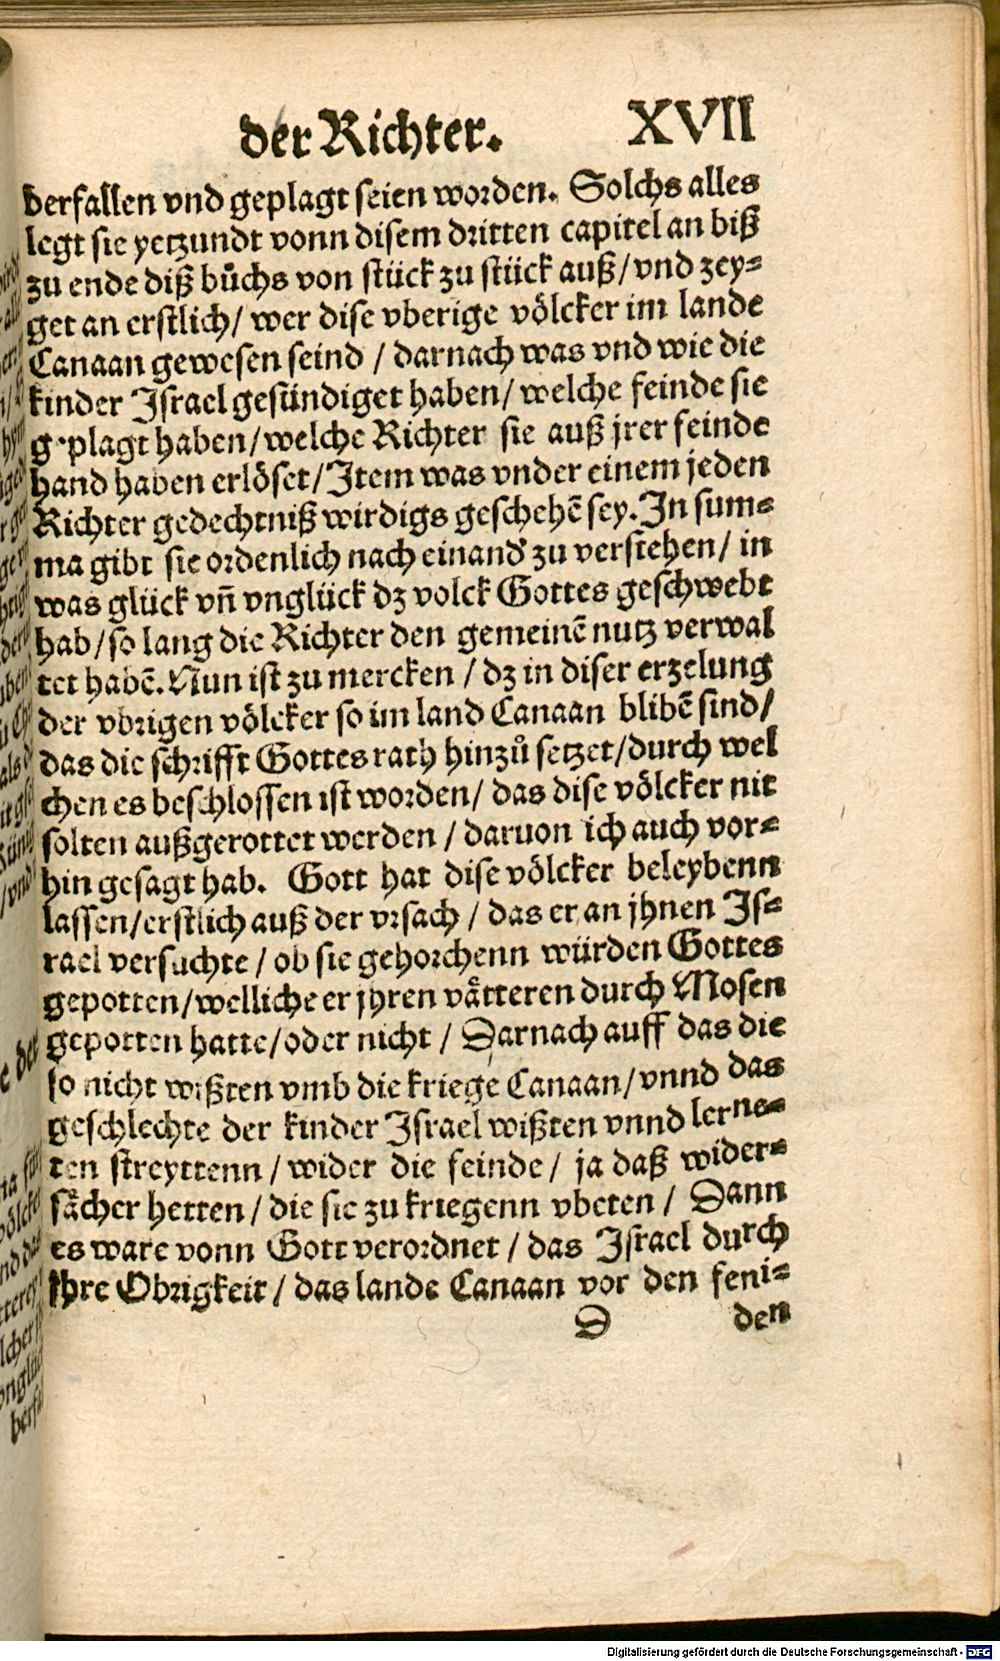 der Richter. XVII
derfallen vnd geplagt seien worden. Solchs alles
legt sie yetzundt vonn disem dritten capitel an biß
zu ende diß bůchs von stück zu stück auß/vnd zey-
get an erstlich/ wer dise vberige völcker im lande
Canaan gewesen seind / darnach was vnd wie die
kinder Israel gesündiget haben/ welche feinde sie
geplagt haben/welche Richter sie auß jrer feinde
hand haben erlöset/Item was vnder einem jeden
Richter gedechtniß wirdigs geschehē sey. In sum-
ma gibt sie ordenlich nach einand' zu verstehen/ in
was glück vñ vnglück dz volck Gottes geschwebt
hab/so lang die Richter den gemeinē nutz verwal
tet habē. Nun ist zu mercken / dz in diser erzelung
der vbrigen völcker so im land Canaan blibē sind/
das die schrifft Gottes rath hinzů setzet/durch wel
chen es beschlossen ist worden/ das dise völcker nit
solten außgerottet werden / daruon ich auch vor-
hin gesagt hab. Gott hat dise völcker beleybenn
lassen/erstlich auß der vrsach / das er an jhnen Is-
rael versuchte / ob sie gehorchenn würden Gottes
gepotten/welliche er jhren våtteren durch Mosen
gepotten hatte/oder nicht / Darnach auff das die
so nicht wißten vmb die kriege Canaan/vnnd das
geschlechte der kinder Israel wißten vnnd lerne-
ten streyttenn / wider die feinde / ja daß wider-
såcher hetten / die sie zu kriegenn vbeten / Dann
es ware vonn Gott verordnet / das Israel durch
jhre Obrigkeit / das lande Canaan vor den feni-
D den
Digitalisierung gefördert durch die Deutsche Forschungsgemeinschaft - DFG